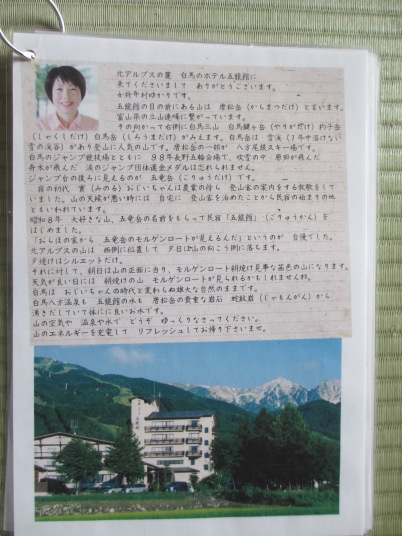 北アルプスの麓 白馬のホテル五龍館に
来てくださいまして ありがとうございます。
女将中村ゆかりです。
五龍館の目の前にある山は 唐松岳（からまつだけ）と言います。
富山県の立山連峰に繋がっています。
その向かって右側に白馬三山 白馬鑓ヶ岳（やりがだけ）杓子岳
（しゃくしだけ）白馬岳（しろうまだけ）がみえます。白馬岳は 雪渓（1年中溶けない
雪の渓谷）があり登山に人気の山です。唐松岳の一部が 八方尾根スキー場です。
白馬のジャンプ競技場とともに 98年長野五輪会場で、吹雪の中 原田が飛んだ
舟木が飛んだ 涙のジャンプ団体戦金メダルは忘れられません。
ジャンプ台の後ろに見えるのが 五竜岳（ごりゅうだけ）です。
宿の初代 實（みのる）おじいちゃんは農業の傍ら 登山客の案内をする歌歌をして
いました。山の天候が悪い時には 自宅に 登山客を泊めたことから民宿の始まりの地
ともいわれています。
昭和8年 大好きな山、五竜岳の名前をもらって民宿「五龍館」（ごりゅうかん）を
はじめました。
「おらほの家から 五竜岳のモルゲンロートが見えるんだ」というのが 自慢でした。
北アルプスの山は 西側に位置して 夕日は山の向こう側に落ちます。
夕焼けはシルエットだけ。
それに対して、朝日は山の正面に当り、モルゲンロート朝焼け見事な茜色の山になります。
天気が良い日には 朝焼けの山 モルゲンロートが見られるかもしれませんね。
白馬は おじいちゃんの時代と変わらぬ雄大な自然のままです。
白馬八方温泉も 五龍館の水も 唐松岳の貴重な岩石 蛇紋岩（じゃもんがん）から
湧きだしていて体にに良いお水です。
山の空気や 温泉や水で どうぞ ゆっくりなさってください。
山のエネルギーを充電して リフレッシュしてお帰り下さいませ。